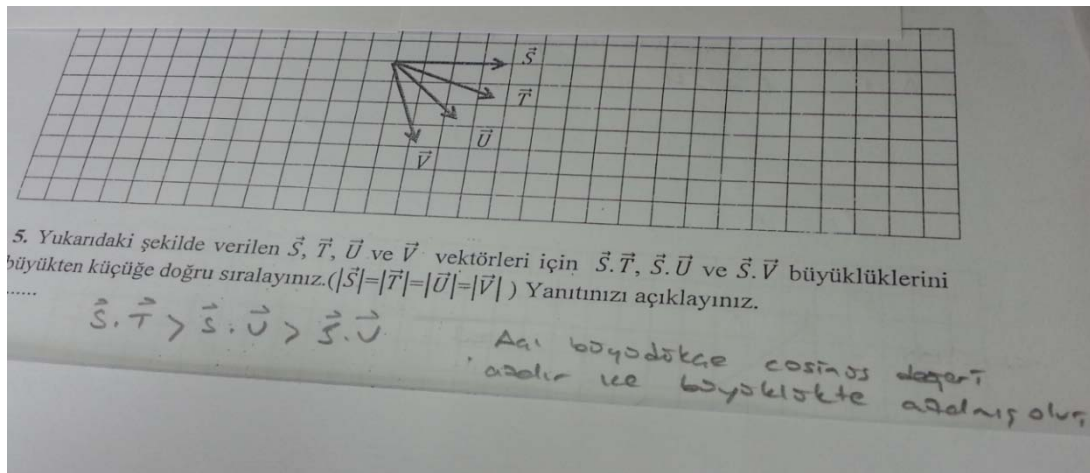 S⃗
T⃗
U⃗
V⃗
5. Yukarıdaki şekilde verilen S⃗, T⃗, U⃗ ve V⃗ vektörleri için S⃗.T⃗, S⃗.U⃗ ve S⃗.V⃗ büyüklüklerini
büyükten küçüğe doğru sıralayınız.(|S⃗|=|T⃗|=|U⃗|=|V⃗| ) Yanıtınızı açıklayınız.
......
S⃗.T⃗ > S⃗.U⃗ > S⃗.V⃗
Açı büyüdükçe cosinüs değeri
azalır ve büyüklükte azalmış olur.